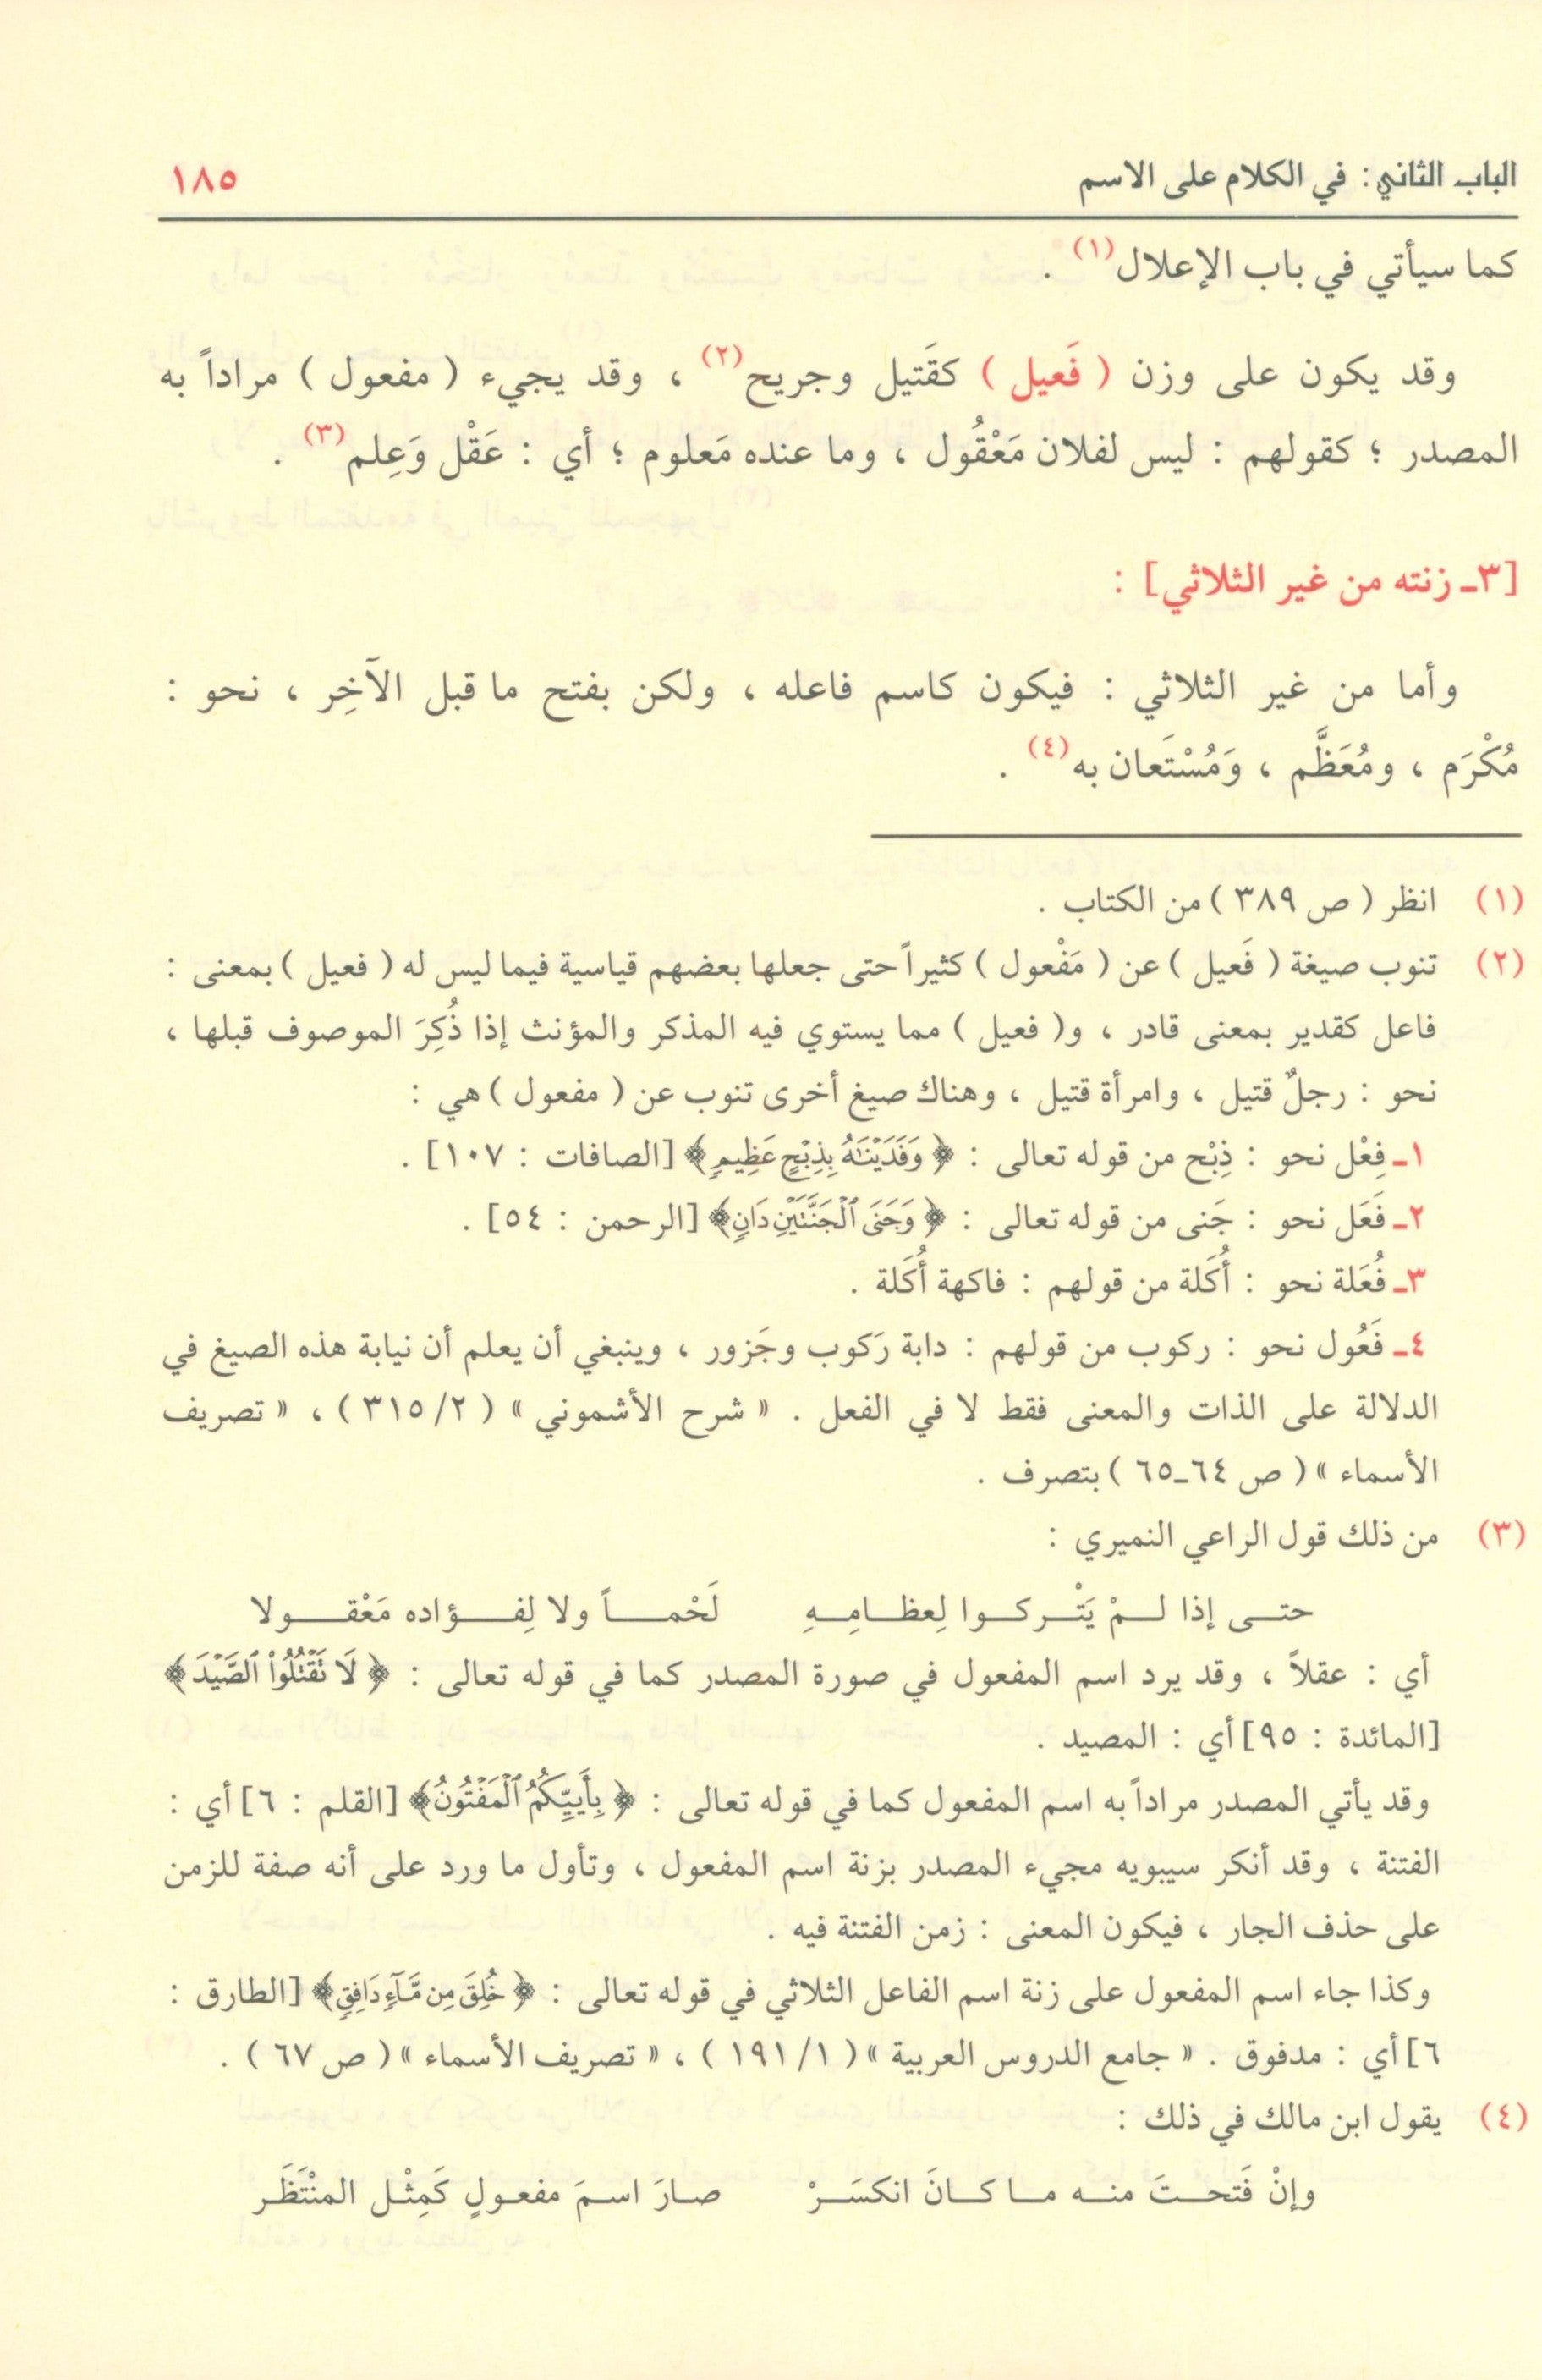 الباب الثاني: في الكلام على الاسم ١٨٥
كما سيأتي في باب الإعلال(١) .
وقد يكون على وزن ( فَعيل ) كقَتيل وجريح(٢) ، وقد يجيء ( مفعول ) مراداً به
المصدر ؛ كقولهم : ليس لفلان مَعْقُول ، وما عنده مَعلوم ؛ أي : عَقْل وَعِلم(٣) .
[٣ـ زنته من غير الثلاثي] :
وأما من غير الثلاثي : فيكون كاسم فاعله ، ولكن بفتح ما قبل الآخِر ، نحو :
مُكْرَم ، ومُعَظَّم ، وَمُسْتَعان به(٤) .
(١) انظر ( ص ٣٨٩ ) من الكتاب .
(٢) تنوب صيغة ( فَعيل ) عن ( مَفْعول ) كثيراً حتى جعلها بعضهم قياسية فيما ليس له ( فعيل ) بمعنى :
فاعل كقدير بمعنى قادر ، و( فعيل ) مما يستوي فيه المذكر والمؤنث إذا ذُكِرَ الموصوف قبلها ،
نحو : رجلٌ قتيل ، وامرأة قتيل ، وهناك صيغ أخرى تنوب عن ( مفعول ) هي :
١ـ فِعْل نحو : ذِبْح من قوله تعالى : ﴿ وَفَدَيْنَٰهُ بِذِبْحٍ عَظِيمٍ ﴾ [الصافات : ١٠٧] .
٢ـ فَعَل نحو : جَنى من قوله تعالى : ﴿ وَجَنَى ٱلْجَنَّتَيْنِ دَانٍ ﴾ [الرحمن : ٥٤] .
٣ـ فُعَلة نحو : أُكَلة من قولهم : فاكهة أُكَلة .
٤ـ فَعُول نحو : ركوب من قولهم : دابة رَكوب وجَزور ، وينبغي أن يعلم أن نيابة هذه الصيغ في
الدلالة على الذات والمعنى فقط لا في الفعل . « شرح الأشموني » ( ٣١٥/٢ ) ، « تصريف
الأسماء » ( ص ٦٤ـ٦٥ ) بتصرف .
(٣) من ذلك قول الراعي النميري :
حتـى إذا لـمْ يَتْـركـوا لِعظـامِـهِ لَحْمـاً ولا لِفـؤاده مَعْقـولا
أي : عقلاً ، وقد يرد اسم المفعول في صورة المصدر كما في قوله تعالى : ﴿ لَا تَقْتُلُوا۟ ٱلصَّيْدَ ﴾
[المائدة : ٩٥] أي : المصيد .
وقد يأتي المصدر مراداً به اسم المفعول كما في قوله تعالى : ﴿ بِأَييِّكُمُ ٱلْمَفْتُونُ ﴾ [القلم : ٦] أي :
الفتنة ، وقد أنكر سيبويه مجيء المصدر بزنة اسم المفعول ، وتأول ما ورد على أنه صفة للزمن
على حذف الجار ، فيكون المعنى : زمن الفتنة فيه .
وكذا جاء اسم المفعول على زنة اسم الفاعل الثلاثي في قوله تعالى : ﴿ خُلِقَ مِن مَّآءٍ دَافِقٍ ﴾ [الطارق :
٦] أي : مدفوق . « جامع الدروس العربية » ( ١٩١/١ ) ، « تصريف الأسماء » ( ص ٦٧ ) .
(٤) يقول ابن مالك في ذلك :
وإنْ فَتحـتَ منـه مـا كـانَ انكسَـرْ صـارَ اسـمَ مفعـولٍ كَمِثْـل المنْتَظَـر